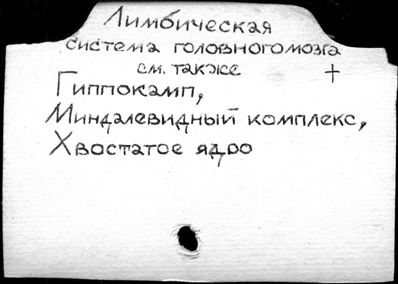 Лимбическая
система головного мозга
см. также +
Гиппокамп,
Миндалевидный комплекс,
Хвостатое ядро